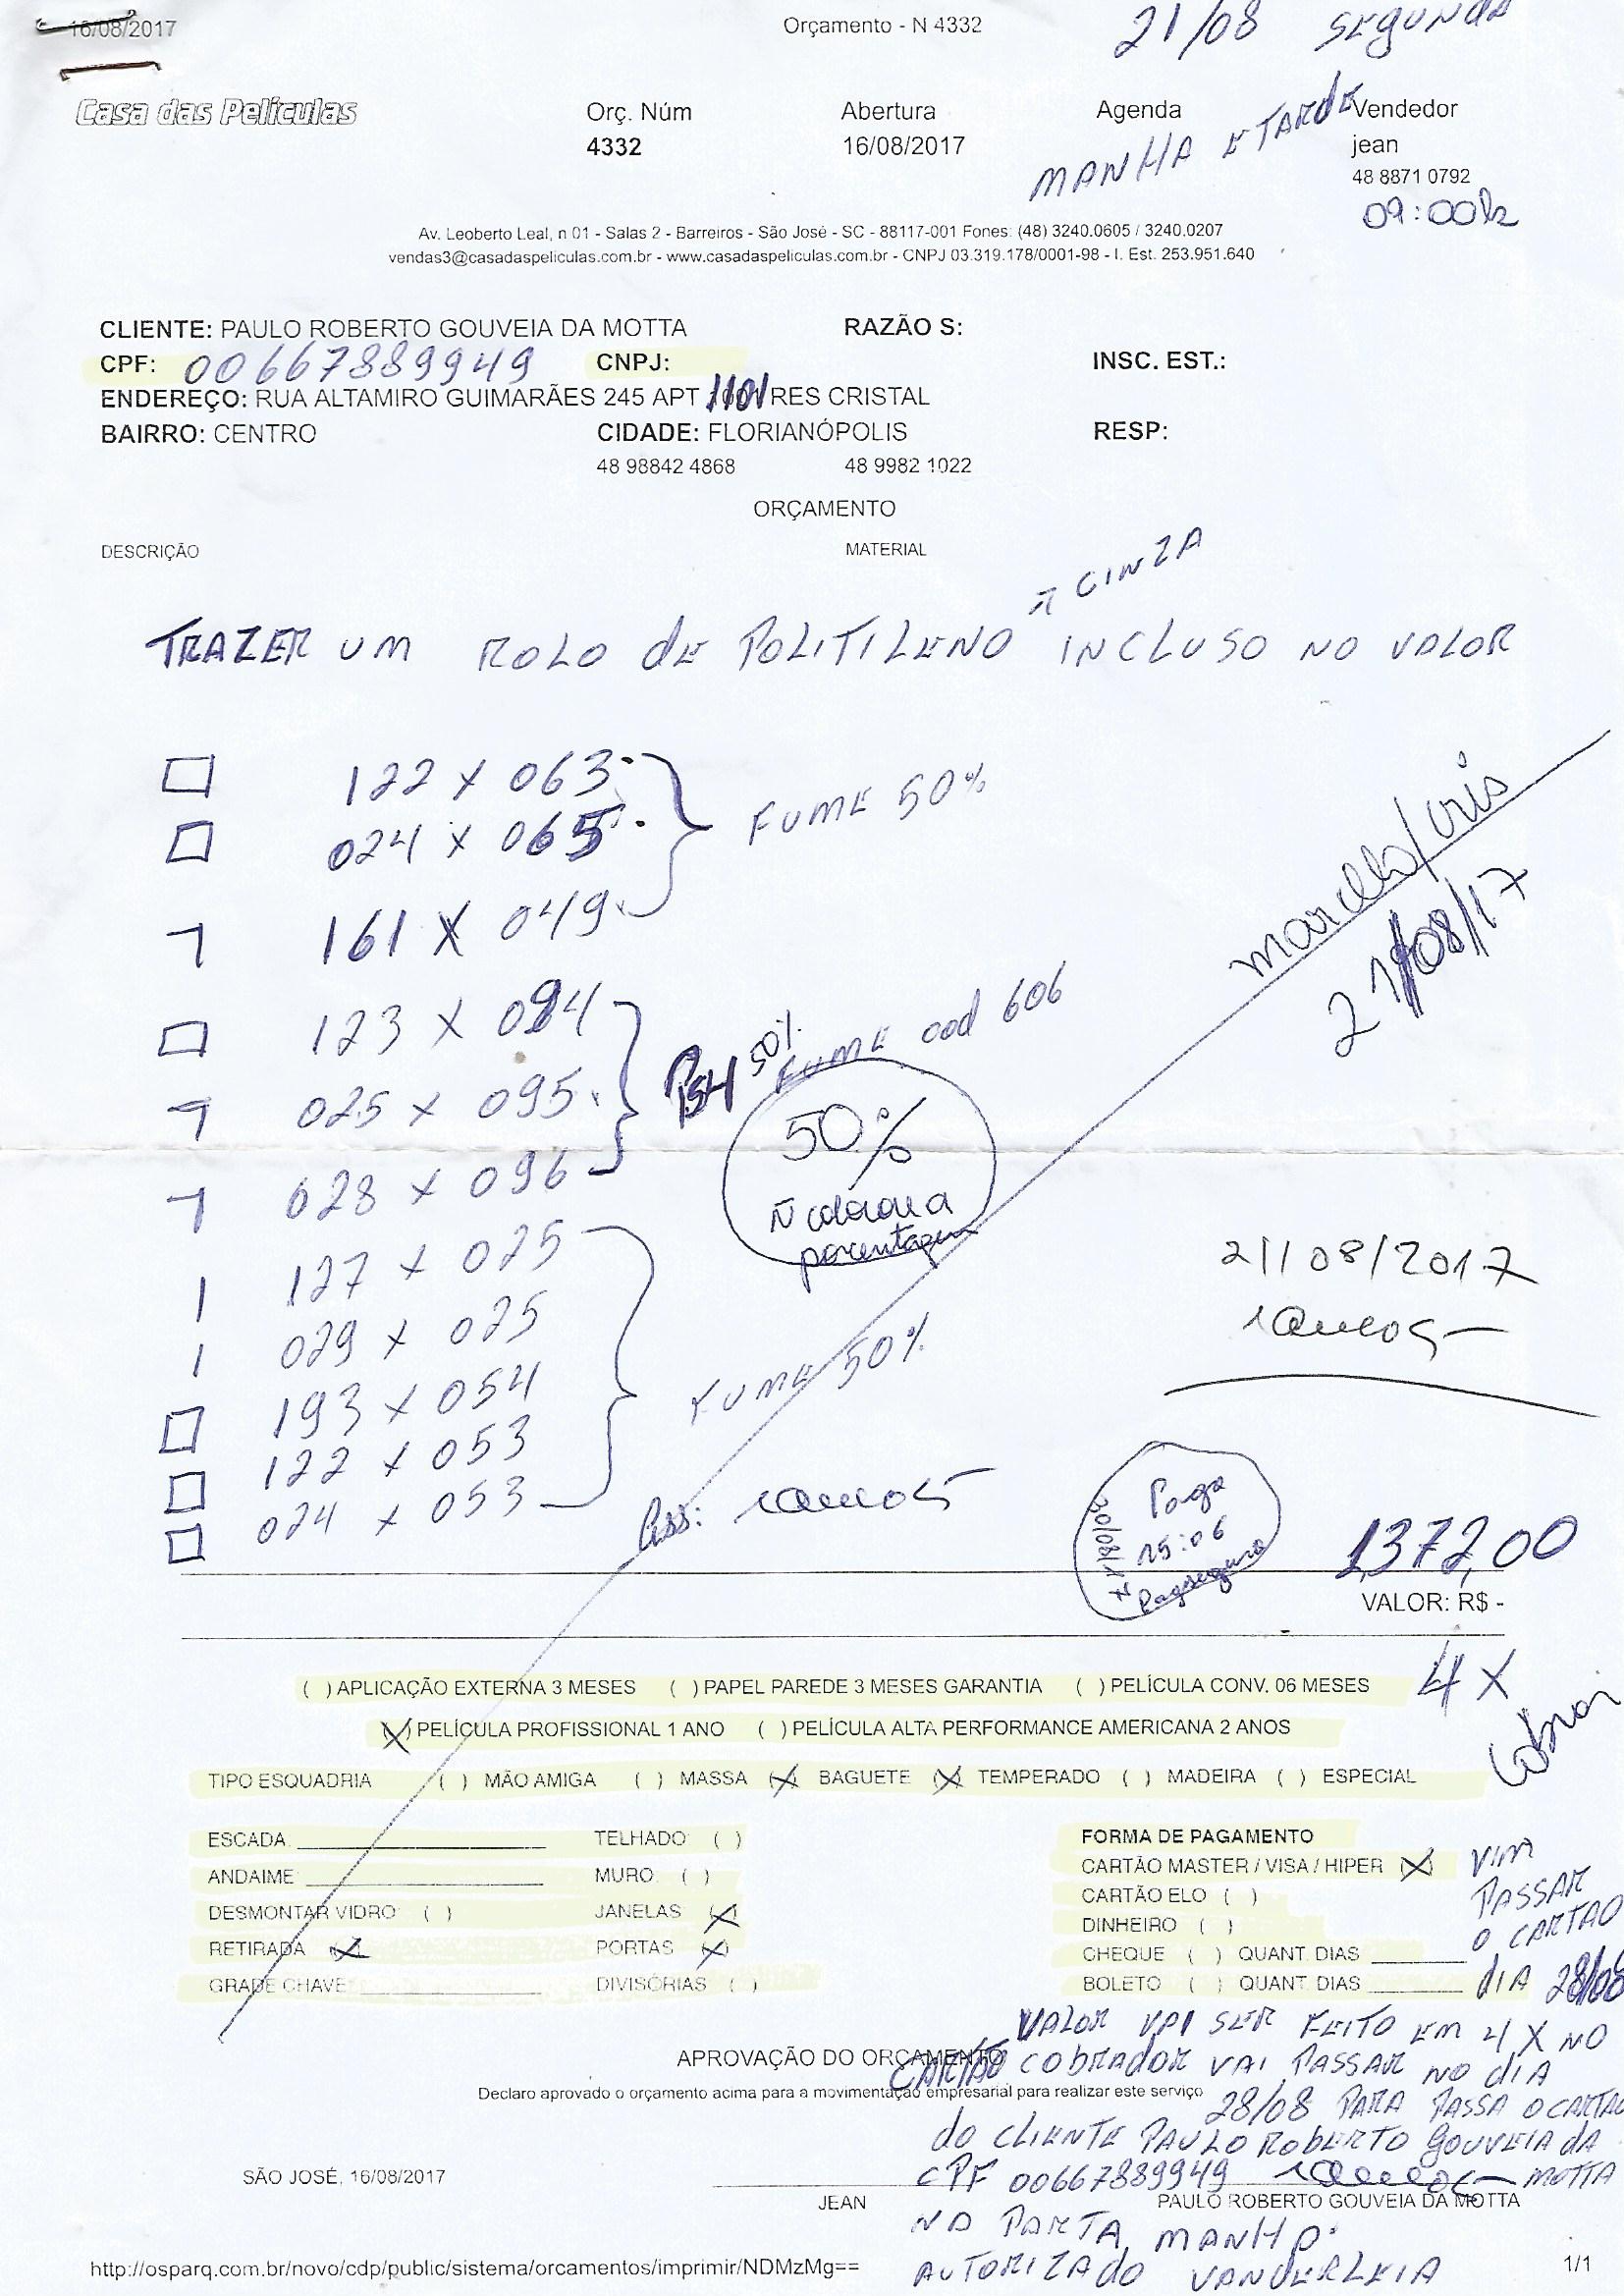 16/08/2017 Orçamento - N 4332 21/08 SEGUNDA
Casa das Películas Orç. Núm Abertura Agenda Vendedor
4332 16/08/2017 MANHA E TARDE jean
48 8871 0792
09:00h
Av. Leoberto Leal, n 01 - Salas 2 - Barreiros - São José - SC - 88117-001 Fones: (48) 3240.0605 / 3240.0207
vendas3@casadaspeliculas.com.br - www.casadaspeliculas.com.br - CNPJ 03.319.178/0001-98 - I. Est. 253.951.640
CLIENTE: PAULO ROBERTO GOUVEIA DA MOTTA RAZÃO S:
CPF: 00667889949 CNPJ: INSC. EST.:
ENDEREÇO: RUA ALTAMIRO GUIMARÃES 245 APT 1101 RES CRISTAL
BAIRRO: CENTRO CIDADE: FLORIANÓPOLIS RESP:
48 98842 4868 48 9982 1022
ORÇAMENTO
DESCRIÇÃO MATERIAL
CINZA
TRAZER UM ROLO DE POLITILENO INCLUSO NO VALOR
122 x 063
024 x 065 FUME 50%
161 x 049
marcelo/cris
21/08/17
123 x 094
50% FUME cod 606
025 x 095
50%
028 x 096
Ñ colocou a
porcentagem
127 x 025
21/08/2017
029 x 025
193 x 054 FUME 50%
122 x 053
024 x 053
Ass:
Pago
15:06
Pagseguro
1372,00
VALOR: R$ -
( ) APLICAÇÃO EXTERNA 3 MESES ( ) PAPEL PAREDE 3 MESES GARANTIA ( ) PELÍCULA CONV. 06 MESES 4X
(X) PELÍCULA PROFISSIONAL 1 ANO ( ) PELÍCULA ALTA PERFORMANCE AMERICANA 2 ANOS
TIPO ESQUADRIA ( ) MÃO AMIGA ( ) MASSA (X) BAGUETE (X) TEMPERADO ( ) MADEIRA ( ) ESPECIAL
ESCADA TELHADO ( ) FORMA DE PAGAMENTO
ANDAIME MURO ( ) CARTÃO MASTER / VISA / HIPER (X) VIM
CARTÃO ELO ( ) PASSAR
DESMONTAR VIDRO ( ) JANELAS (X) DINHEIRO ( ) O CARTAO
RETIRADA (X) PORTAS (X) CHEQUE ( ) QUANT. DIAS
GRADE CHAVE DIVISÓRIAS ( ) BOLETO ( ) QUANT. DIAS DIA 28/08
VALOR VAI SER FEITO EM 4 X NO
APROVAÇÃO DO ORÇAMENTO
CARTÃO COBRADOR VAI PASSAR NO DIA
Declaro aprovado o orçamento acima para a movimentação empresarial para realizar este serviço
28/08 PARA PASSA O CARTAO
DO CLIENTE PAULO ROBERTO GOUVEIA DA
SÃO JOSÉ, 16/08/2017 CPF 00667889949 MOTTA
JEAN PAULO ROBERTO GOUVEIA DA MOTTA
NA PARTA MANHA
AUTORIZADO VANDERLEIA
http://osparq.com.br/novo/cdp/public/sistema/orcamentos/imprimir/NDMzMg== 1/1